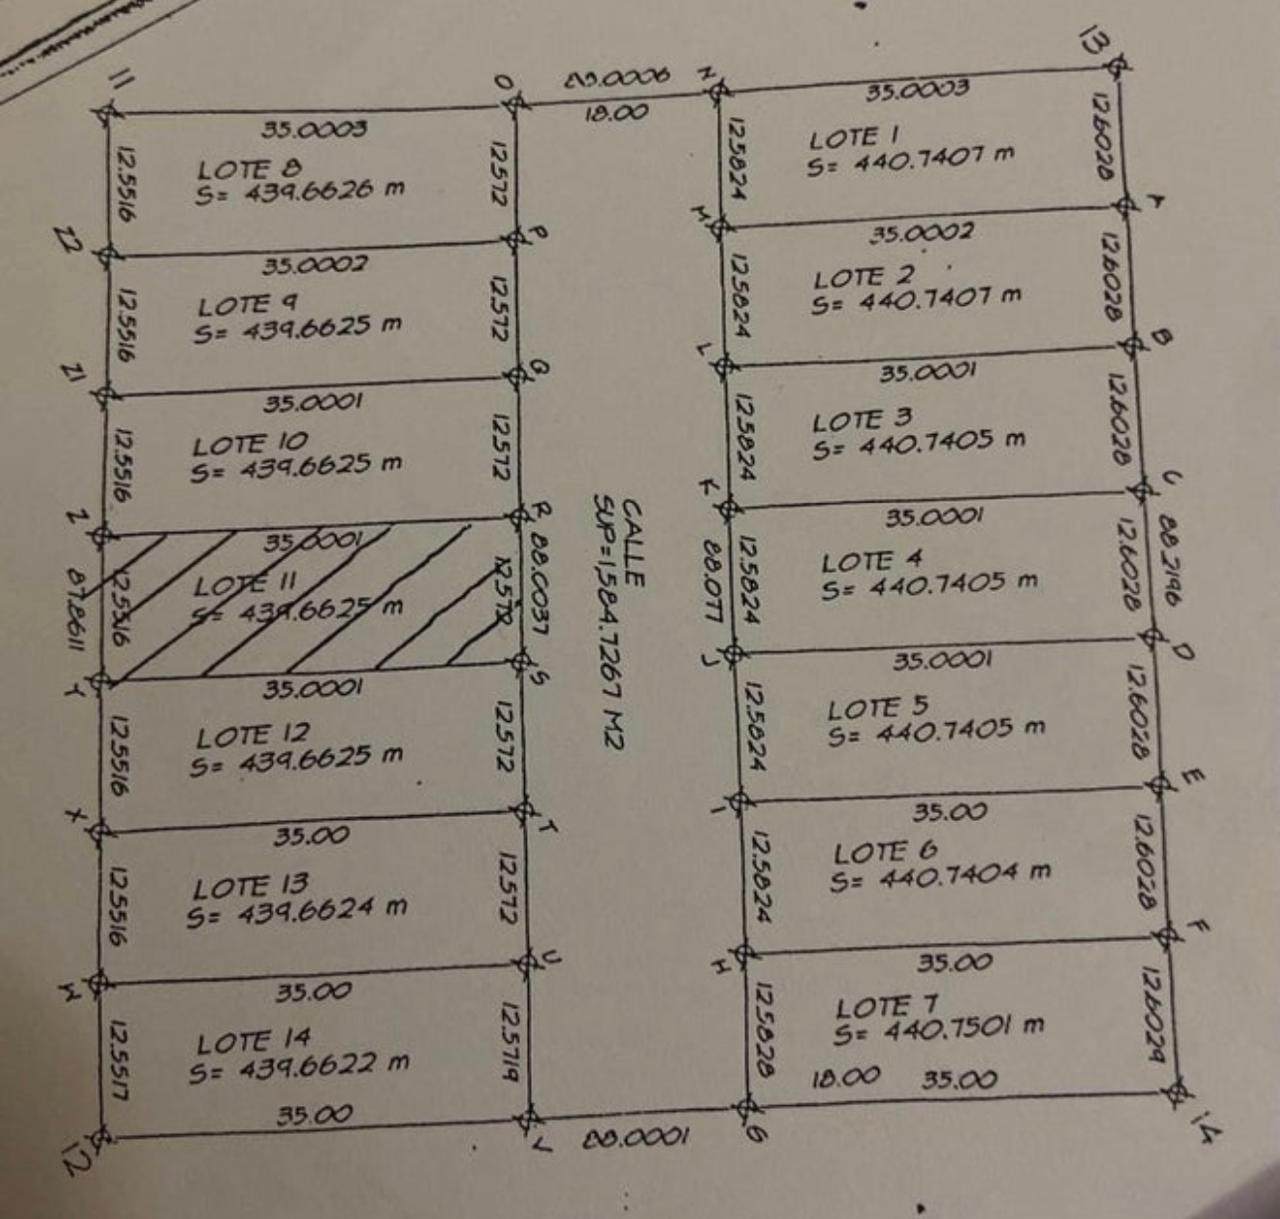 11
O
88.0006
N
13
35.0003
18.00
35.0003
12.5516
LOTE 8
S= 439.6626 m
12.572
12.5824
LOTE 1
S= 440.7407 m
12.6028
Z2
P
M
A
35.0002
35.0002
12.5516
LOTE 9
S= 439.6625 m
12.572
12.5824
LOTE 2
S= 440.7407 m
12.6028
Z1
Q
L
B
35.0001
35.0001
12.5516
LOTE 10
S= 439.6625 m
12.572
12.5824
LOTE 3
S= 440.7405 m
12.6028
Z
R
K
C
35.0001
35.0001
87.8611
12.5516
LOTE 11
S= 439.6625 m
12.572
88.0037
CALLE
SUP=1,584.7267 M2
88.077
12.5824
LOTE 4
S= 440.7405 m
12.6028
88.2196
Y
S
J
D
35.0001
35.0001
12.5516
LOTE 12
S= 439.6625 m
12.572
12.5824
LOTE 5
S= 440.7405 m
12.6028
X
T
I
E
35.00
35.00
12.5516
LOTE 13
S= 439.6624 m
12.572
12.5824
LOTE 6
S= 440.7404 m
12.6028
W
U
H
F
35.00
35.00
12.5517
LOTE 14
S= 439.6622 m
12.5719
12.5828
LOTE 7
S= 440.7501 m
12.6029
35.00
18.00
35.00
12
V
88.0001
G
14